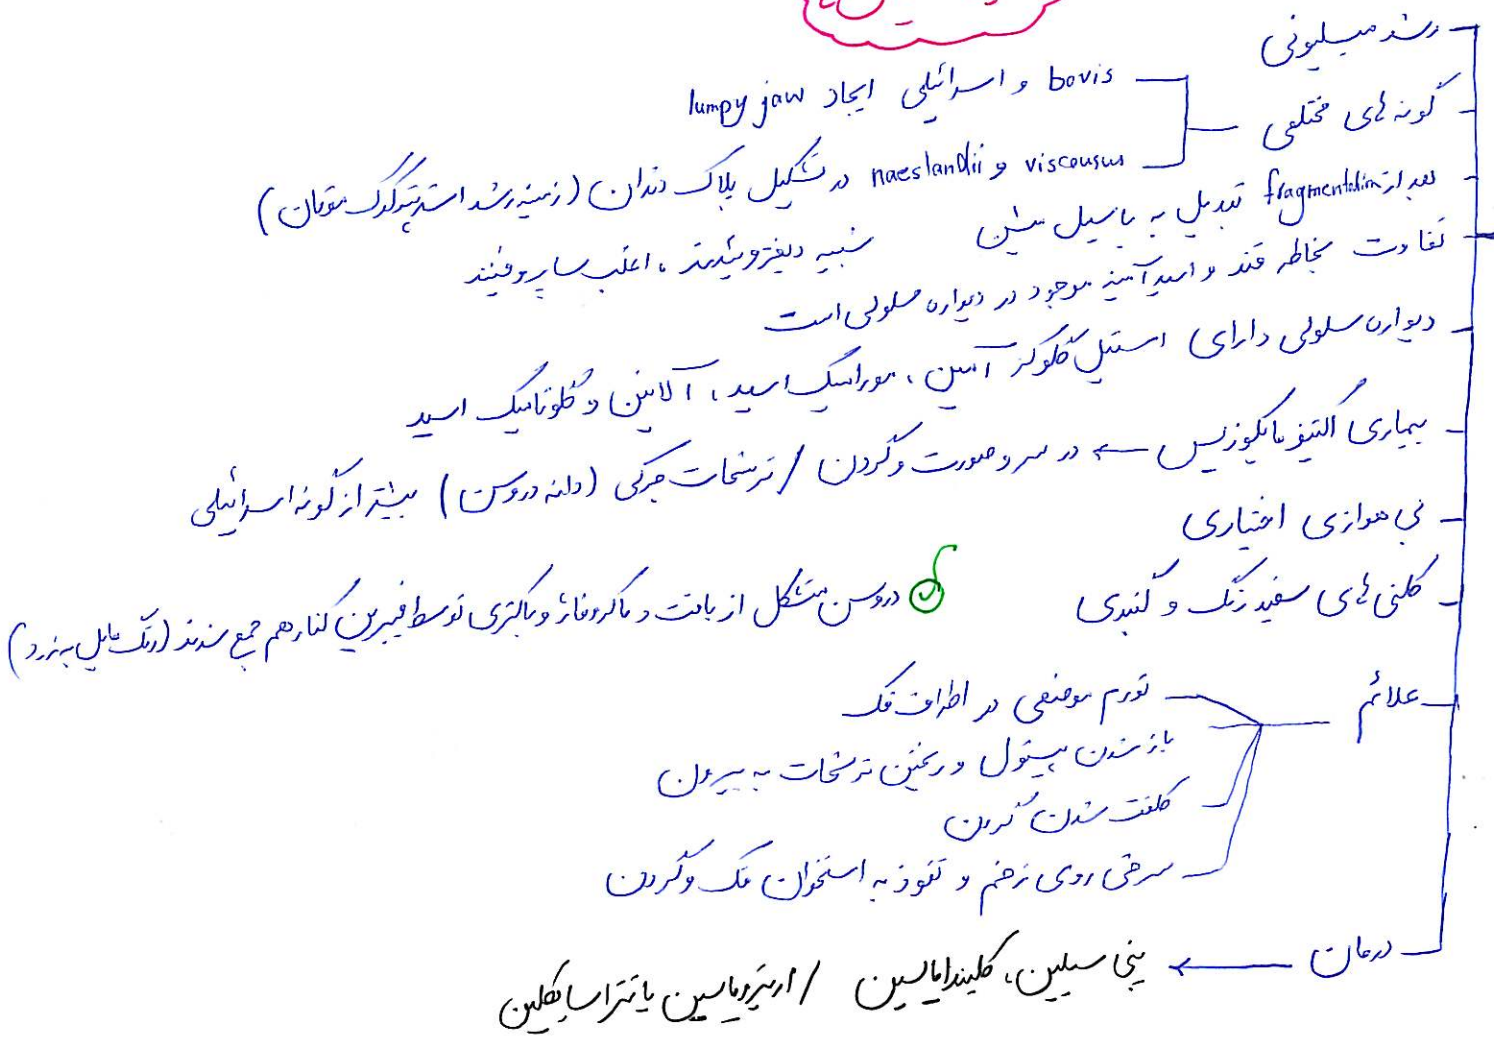 رشد میسلیونی
گونه های مختلفی
bovis و اسرائیلی ایجاد lumpy jaw
viscousus و naeslandii در تشکیل پلاک دندان (زمینه رشد استرپتوکوک موتان)
بعد از fragmentation تبدیل به باسیل میشن
شبیه دیفتروئیدند، اغلب ساپروفیتند
تفاوت بخاطر قند و اسید آمینه موجود در دیواره سلولی است
دیواره سلولی دارای استیل گلوکز آمین، مورامیک اسید، آلانین و گلوتامیک اسید
بیماری اکتینومایکوزیس ← در سر و صورت و گردن / ترشحات چرکی (دانه دروسن) بیشتر از گونه اسرائیلی
بی هوازی اختیاری
کلنی های سفید رنگ و گنبدی
دروسن متشکل از بافت و ماکروفاژ و باکتری توسط فیبرین کنار هم جمع شدند (رنگ مایل به زرد)
علائم
تورم موضعی در اطراف فک
باز شدن پیستول و ریختن ترشحات به بیرون
کلفت شدن گردن
سرخی روی زخم و نفوذ به استخوان فک و گردن
درمان ← پنی سیلین، کلیندامایسین / اریترومایسین یا تتراسایکلین